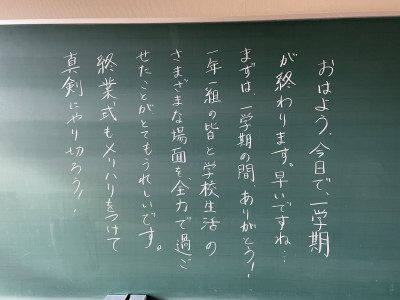 おはよう、今日で、一学期
が終わります。早いですね…
まずは、一学期の間、ありがとう！
一年一組の皆と学校生活の
さまざまな場面を、全力で過ご
せたことがとてもうれしいです。
終業式もメリハリをつけて
真剣にやり切ろう！